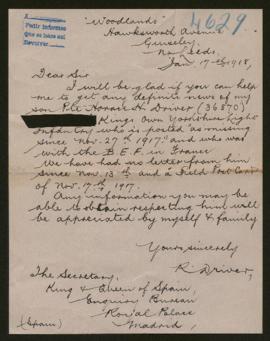 "Woodlands"
Hawksworth Avenue
Guiseley
Nr Leeds.
Jan 17th 1918.
4629
Pedir informes
Dear Sir
I will be glad if you can help
me to get any definite news of my
son Pte Horace H Driver (36870)
Kings Own Yorkshire Light
Infantry who is posted as missing
since Nov. 27th 1917 and who was
with the B.E.F. in France
We have had no letter from him
since Nov. 13th and a Field Post Card
of Nov. 17th 1917.
Any information you may be
able to obtain respecting him will
be appreciated by myself & family
Yours sincerely
R. Driver,
The Secretary,
King & Queen of Spain,
Enquiry Bureau
Royal Palace
Madrid,
(Spain)